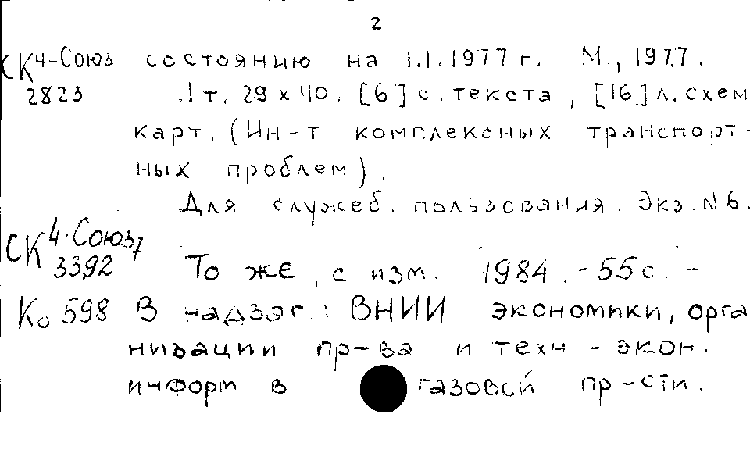 2
СК 4-Союз состоянию на 1.I.1977 г. М., 1977.
2823 1 т. 29 х 40. [6] с. текста, [16] л. схем
карт. (Ин-т комплексных транспорт-
ных проблем).
Для служеб. пользования. Экз. №6.
СК 4-Союз7
3392 То же, с изм. 1984. - 55 с. -
Ко 598 В надзаг.: ВНИИ экономики, орга
низации пр-ва и техн - экон.
информ в газовой пр-сти.